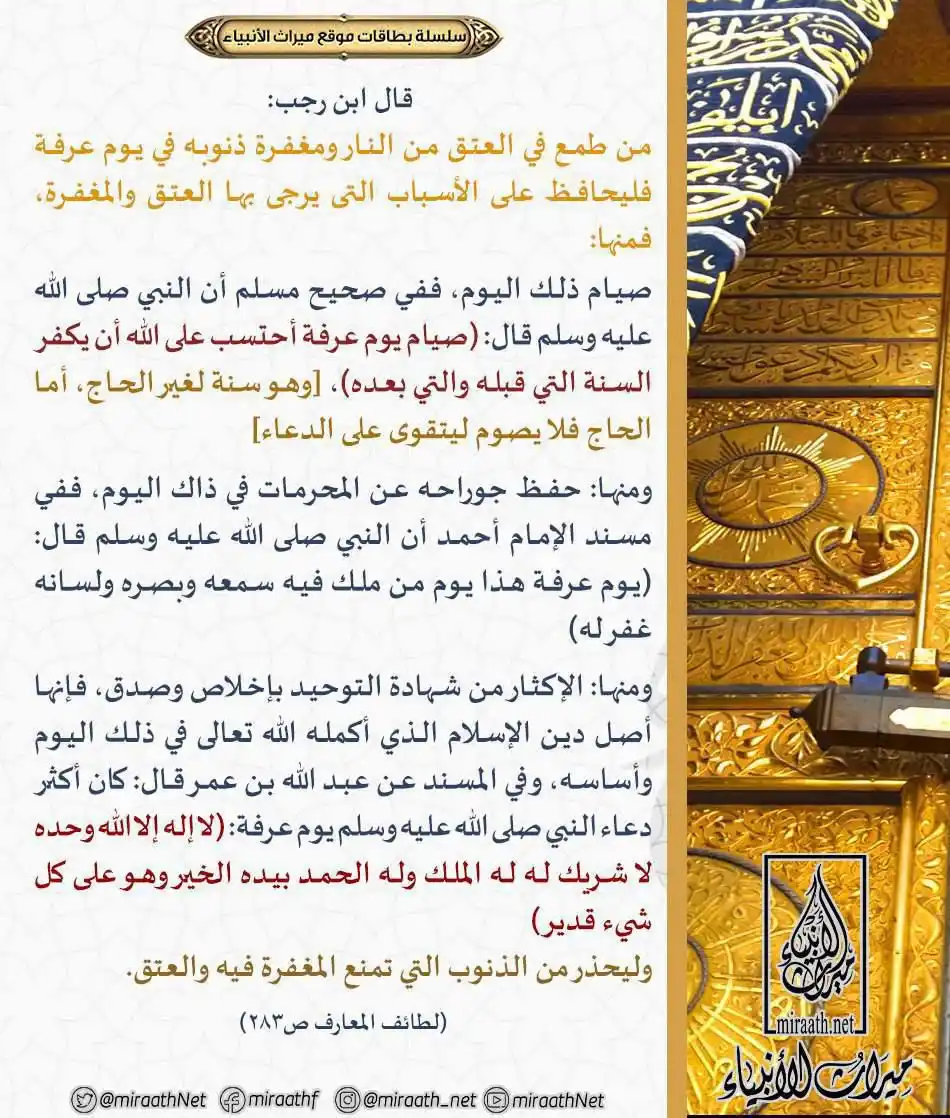 سلسلة بطاقات موقع ميراث الأنبياء
قال ابن رجب:
من طمع في العتق من النار ومغفرة ذنوبه في يوم عرفة
فليحافظ على الأسباب التى يرجى بها العتق والمغفرة،
فمنها:
صيام ذلك اليوم، ففي صحيح مسلم أن النبي صلى الله
عليه وسلم قال: (صيام يوم عرفة أحتسب على الله أن يكفر
السنة التي قبله والتي بعده)، [وهو سنة لغير الحاج، أما
الحاج فلا يصوم ليتقوى على الدعاء]
ومنها: حفظ جوراحه عن المحرمات في ذاك اليوم، ففي
مسند الإمام أحمد أن النبي صلى الله عليه وسلم قال:
(يوم عرفة هذا يوم من ملك فيه سمعه وبصره ولسانه
غفر له)
ومنها: الإكثار من شهادة التوحيد بإخلاص وصدق، فإنها
أصل دين الإسلام الذي أكمله الله تعالى في ذلك اليوم
وأساسه، وفي المسند عن عبد الله بن عمر قال: كان أكثر
دعاء النبي صلى الله عليه وسلم يوم عرفة: (لا إله إلا الله وحده
لا شريك له له الملك وله الحمد بيده الخير وهو على كل
شيء قدير)
وليحذر من الذنوب التي تمنع المغفرة فيه والعتق.
(لطائف المعارف ص٢٨٣)
ميراث الأنبياء
miraath.net
ميراث الأنبياء
@miraathNet miraathf @miraath_net miraathNet